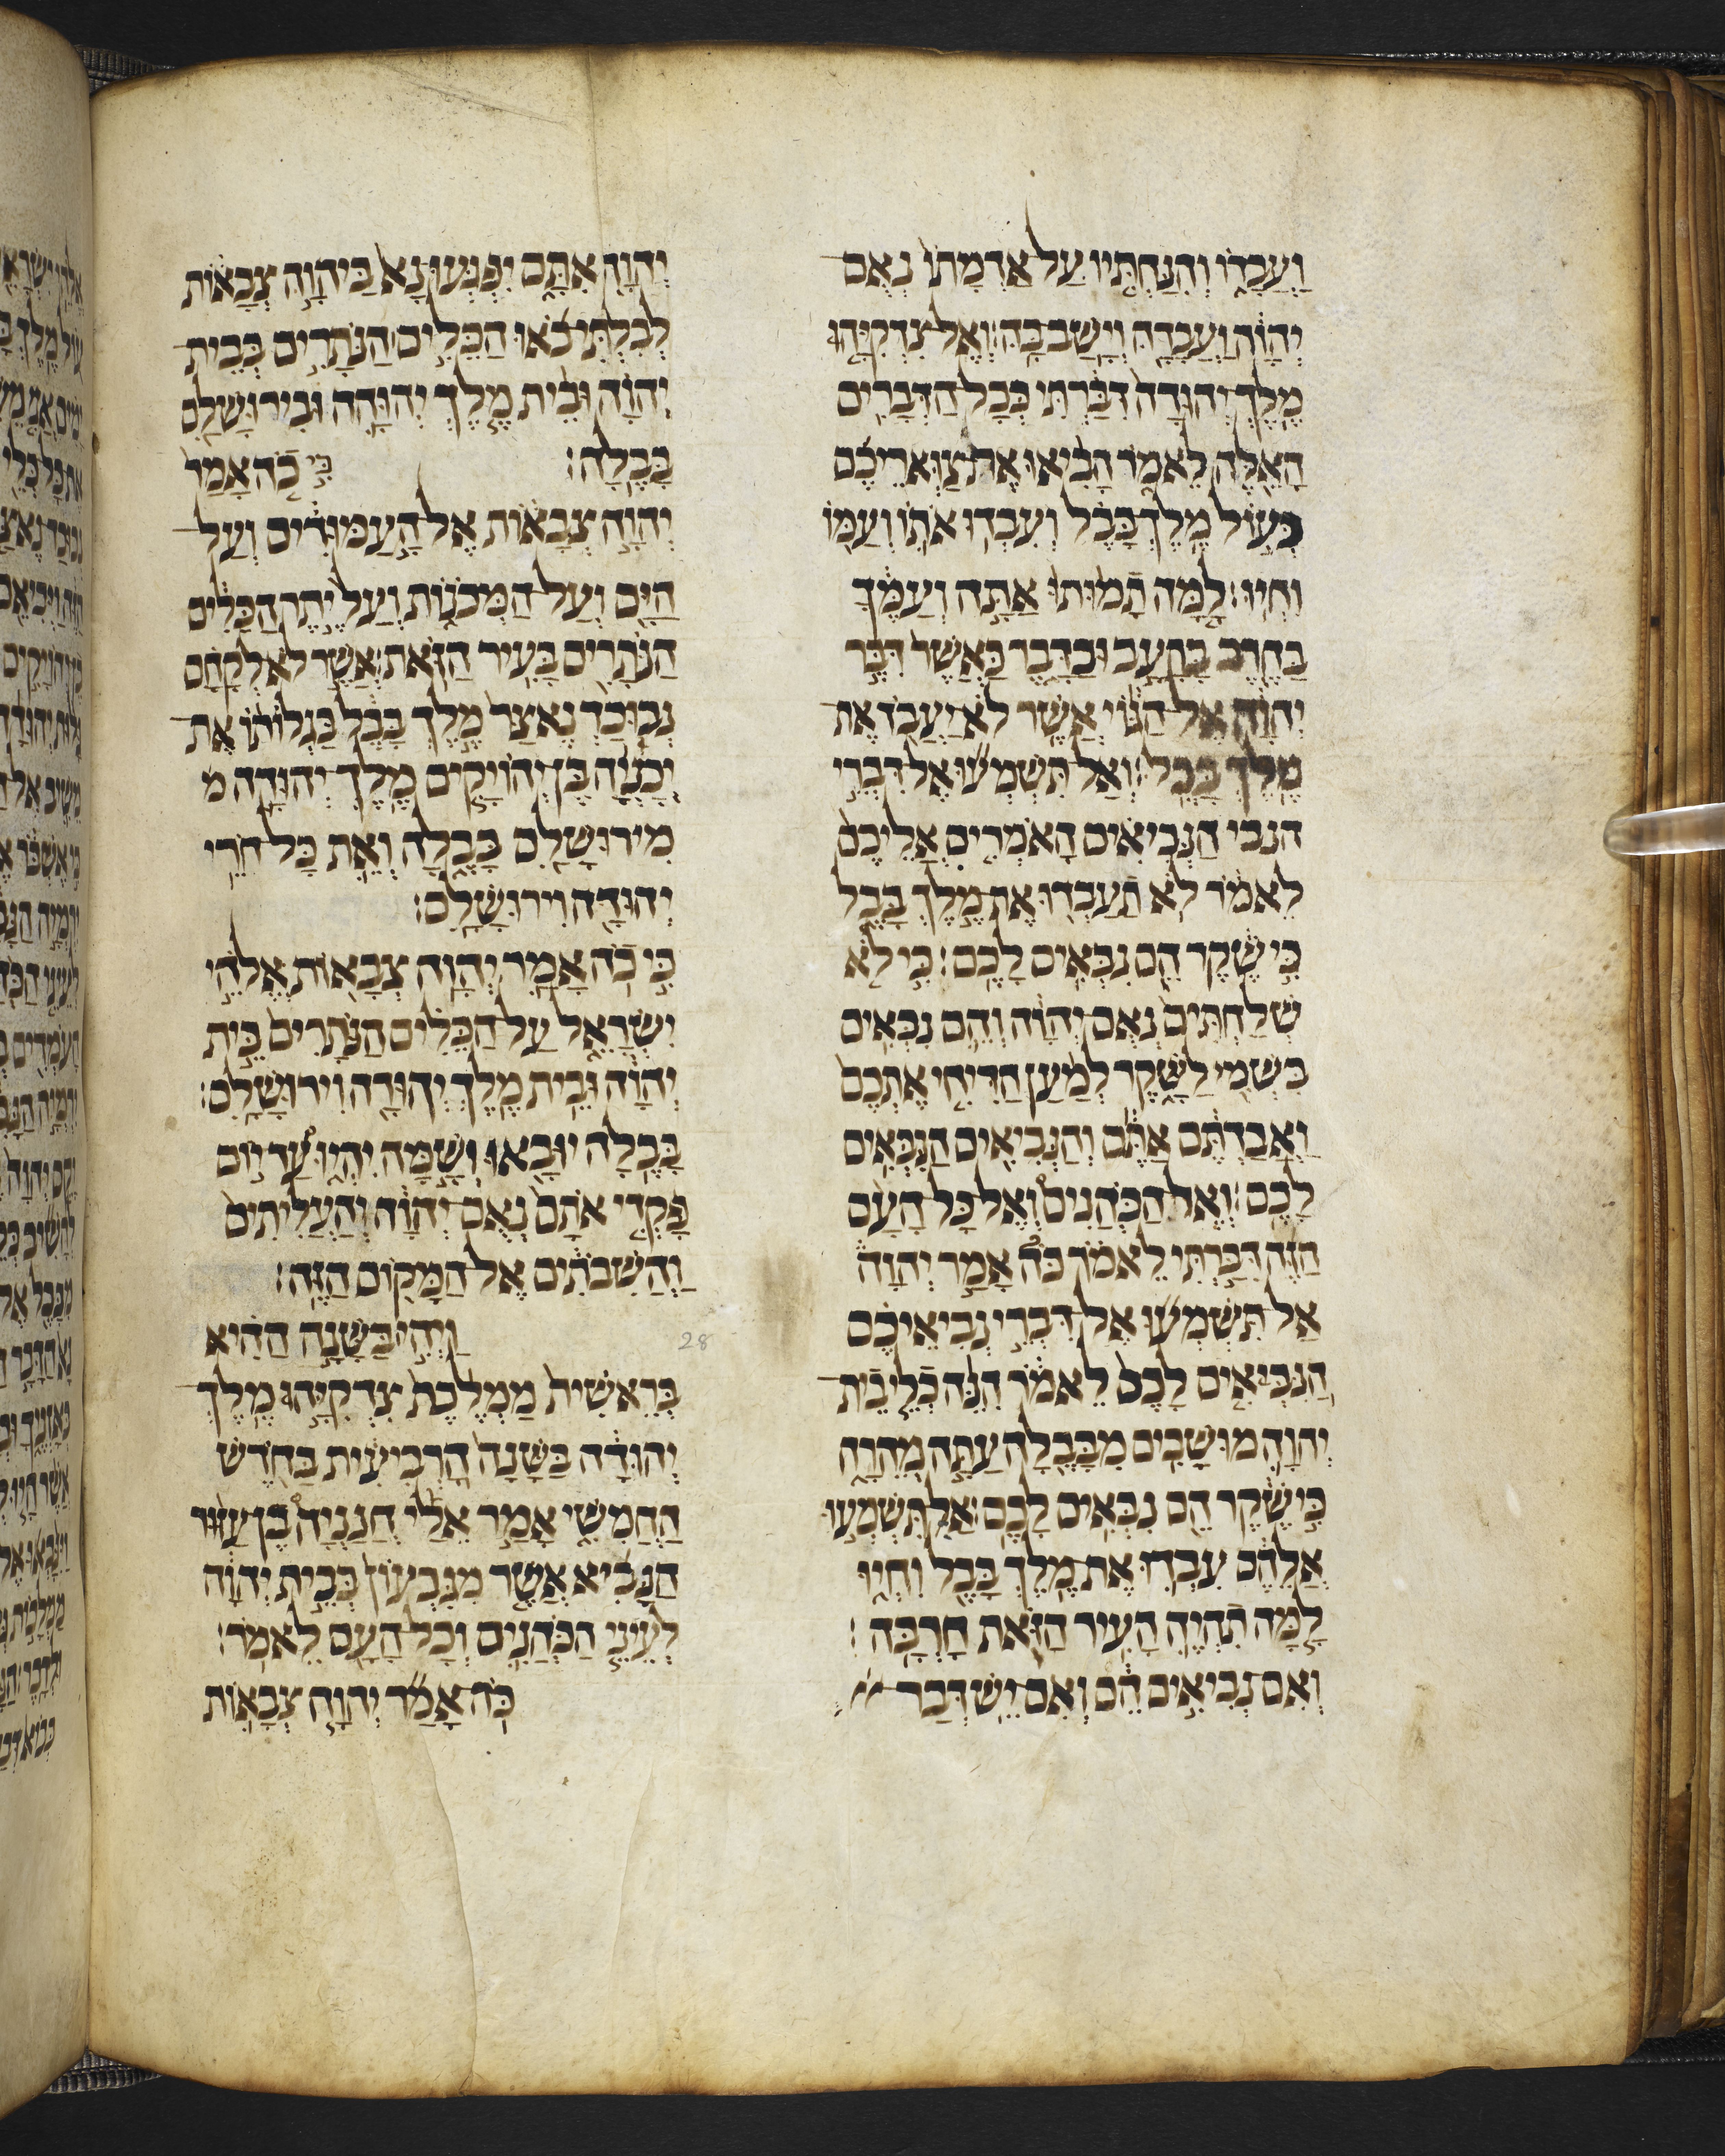 וַעֲבָדוֹ וְהִנַּחְתִּיו עַל אַדְמָתוֹ נְאֻם
יְהוָה וַעֲבָדָהּ וְיָשַׁב בָּהּ׃ וְאֶל צִדְקִיָּהוּ
מֶלֶךְ יְהוּדָה דִּבַּרְתִּי כְּכָל הַדְּבָרִים
הָאֵלֶּה לֵאמֹר הָבִיאוּ אֶת צַוְּארֵיכֶם
בְּעֹל מֶלֶךְ בָּבֶל וְעִבְדוּ אֹתוֹ וְעַמּוֹ
וִחְיוּ׃ לָמָּה תָמוּתוּ אַתָּה וְעַמֶּךָ
בַּחֶרֶב בָּרָעָב וּבַדָּבֶר כַּאֲשֶׁר דִּבֶּר
יְהוָה אֶל הַגּוֹי אֲשֶׁר לֹא יַעֲבֹד אֶת
מֶלֶךְ בָּבֶל׃ וְאַל תִּשְׁמְעוּ אֶל דִּבְרֵי
הנבי הַנְּבִיאִים הָאֹמְרִים אֲלֵיכֶם
לֵאמֹר לֹא תַעַבְדוּ אֶת מֶלֶךְ בָּבֶל
כִּי שֶׁקֶר הֵם נִבְּאִים לָכֶם׃ כִּי לֹא
שְׁלַחְתִּים נְאֻם יְהוָה וְהֵם נִבְּאִים
בִּשְׁמִי לַשָּׁקֶר לְמַעַן הַדִּיחִי אֶתְכֶם
וַאֲבַדְתֶּם אַתֶּם וְהַנְּבִיאִים הַנִּבְּאִים
לָכֶם׃ וְאֶל הַכֹּהֲנִים וְאֶל כָּל הָעָם
הַזֶּה דִּבַּרְתִּי לֵאמֹר כֹּה אָמַר יְהוָה
אַל תִּשְׁמְעוּ אֶל דִּבְרֵי נְבִיאֵיכֶם
הַנִּבְּאִים לָכֶם לֵאמֹר הִנֵּה כְלֵי בֵית
יְהוָה מוּשָׁבִים מִבָּבֶלָה עַתָּה מְהֵרָה
כִּי שֶׁקֶר הֵם נִבְּאִים לָכֶם׃ אַל תִּשְׁמְעוּ
אֲלֵהֶם עִבְדוּ אֶת מֶלֶךְ בָּבֶל וִחְיוּ
לָמָּה תִהְיֶה הָעִיר הַזֹּאת חָרְבָּה׃
וְאִם נְבִיאִים הֵם וְאִם יֵשׁ דְּבַר
יְהוָה אִתָּם יִפְגְּעוּ נָא בַּיהוָה צְבָאוֹת
לְבִלְתִּי בֹאוּ הַכֵּלִים הַנּוֹתָרִים בְּבֵית
יְהוָה וּבֵית מֶלֶךְ יְהוּדָה וּבִירוּשָׁלִַם
בָּבֶלָה׃ כִּי כֹה אָמַר
יְהוָה צְבָאוֹת אֶל הָעַמּוּדִים וְעַל
הַיָּם וְעַל הַמְּכֹנוֹת וְעַל יֶתֶר הַכֵּלִים
הַנּוֹתָרִים בָּעִיר הַזֹּאת׃ אֲשֶׁר לֹא לְקָחָם
נְבוּכַדְנֶאצַּר מֶלֶךְ בָּבֶל בַּגְלוֹתוֹ אֶת
יְכָנְיָה בֶן יְהוֹיָקִים מֶלֶךְ יְהוּדָה מ
מִירוּשָׁלִַם בָּבֶלָה וְאֵת כָּל חֹרֵי
יְהוּדָה וִירוּשָׁלִָם׃
כִּי כֹה אָמַר יְהוָה צְבָאוֹת אֱלֹהֵי
יִשְׂרָאֵל עַל הַכֵּלִים הַנּוֹתָרִים בֵּית
יְהוָה וּבֵית מֶלֶךְ יְהוּדָה וִירוּשָׁלִָם׃
בָּבֶלָה יוּבָאוּ וְשָׁמָּה יִהְיוּ עַד יוֹם
פָּקְדִי אֹתָם נְאֻם יְהוָה וְהַעֲלִיתִים
וַהֲשִׁבֹתִים אֶל הַמָּקוֹם הַזֶּה׃
28 וַיְהִי בַּשָּׁנָה הַהִיא
בְּרֵאשִׁית מַמְלֶכֶת צִדְקִיָּהוּ מֶלֶךְ
יְהוּדָה בַּשָּׁנָה הָרְבִיעִית בַּחֹדֶשׁ
הַחֲמִישִׁי אָמַר אֵלַי חֲנַנְיָה בֶן עַזּוּר
הַנָּבִיא אֲשֶׁר מִגִּבְעוֹן בְּבֵית יְהוָה
לְעֵינֵי הַכֹּהֲנִים וְכָל הָעָם לֵאמֹר׃
כֹּה אָמַר יְהוָה צְבָאוֹת